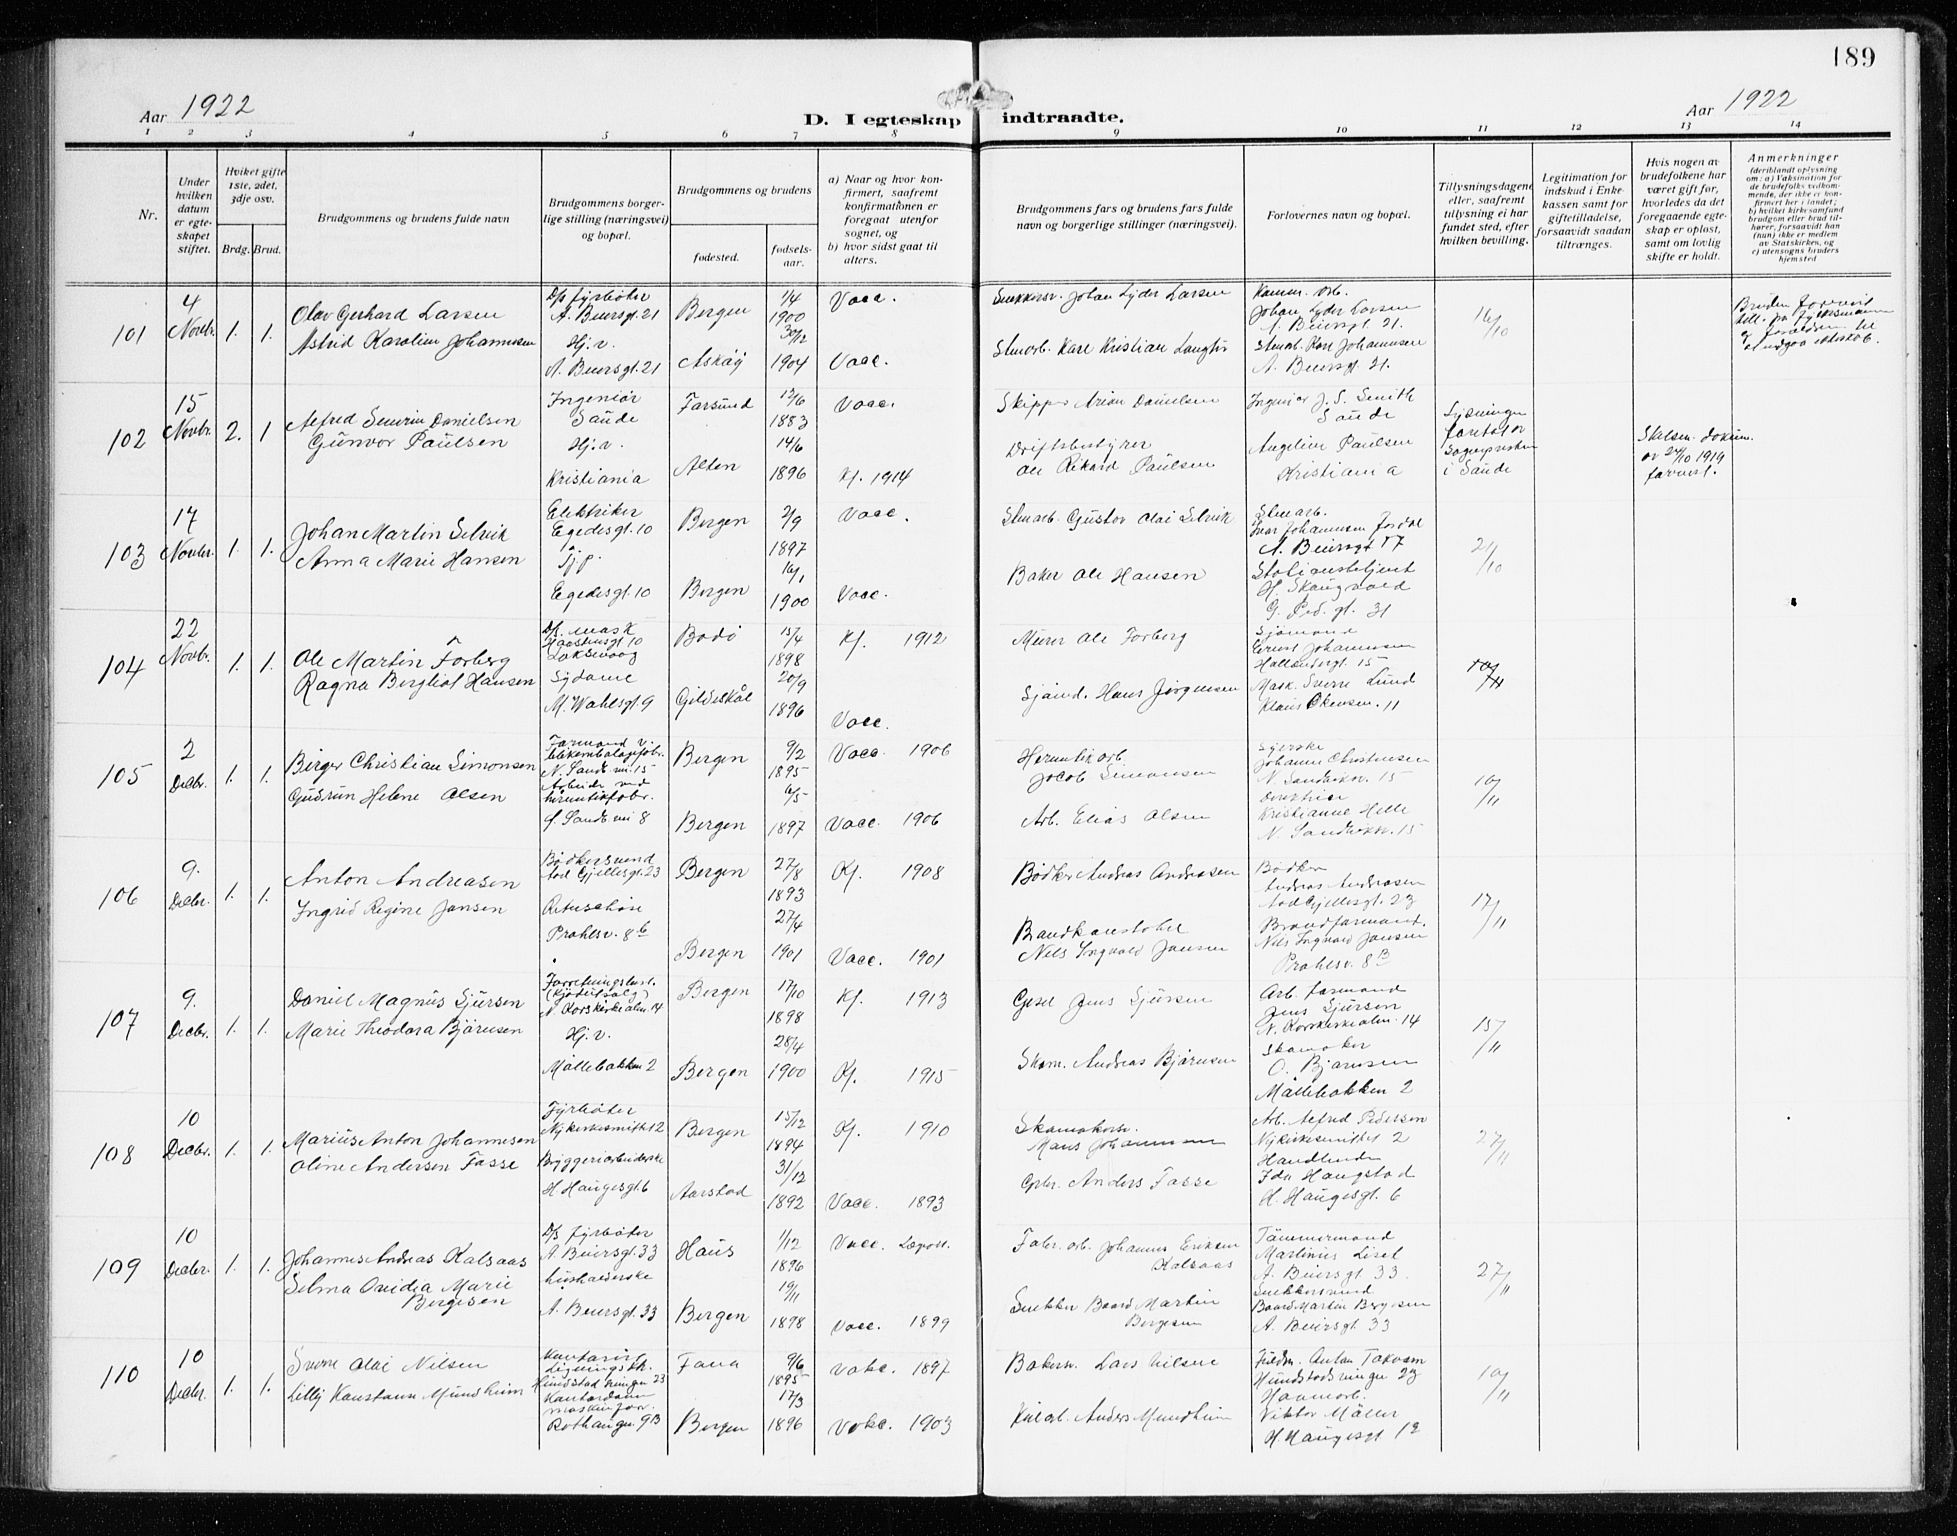 189
Aar 1922
D. I egteskap indtraadte.
Aar 1922
1 2 3 4 5 6 7 8 9 10 11 12 13 14
Nr.
Under
hvilken
datum
er egte-
skapet
stiftet.
Hvilket gifte
1ste, 2det,
3dje osv.
Brdg. Brud.
Brudgommens og brudens fulde navn
Brudgommens borger-
lige stilling (næringsvei)
og bopæl.
Brudgommens og brudens
fødested.
fødsels-
aar.
a) Naar og hvor kon-
firmert, saafremt
konfirmationen er
foregaat utenfor
sognet, og
b) hvor sidst gaat til
alters.
Brudgommens fars og brudens fars fulde
navn og borgerlige stillinger (næringsvei).
Forlovernes navn og bopæl.
Tillysningsdagene
eller, saafremt
tillysning ei har
fundet sted, efter
hvilken bevilling.
Legitimation for
indskud i Enke-
kassen samt for
giftetilladelse,
forsaavidt saadan
tiltrænges.
Hvis nogen av
brudefolkene har
været gift før,
hvorledes da det
foregaaende egte-
skap er opløst,
samt om lovlig
skifte er holdt.
Anmerkninger
(deriblandt oplysning
om: a) Vaksination for
de brudefolks vedkom-
mende, der ikke er kon-
firmert her i landet;
b) hvilket kirkesamfund
brudgom eller brud til-
hører, forsaavidt han
(hun) ikke er medlem
av Statskirken, og
c) utensogns bruders
hjemsted
101
4
Novbr.
1. 1.
Olav Gerhard Larsen
Astrid Karoline Johannesen
D/s fyrbøter
A. Beiersgt. 21
Hj. v.
A. Beiersgt. 21
Bergen
Askøy
1/4
1900
30/12
1904
Vacc.
Vacc.
Snekkersv. Johan Lyder Larsen
Stenarb. Karl Kristian Langlie
Johan Lyder Larsen
A. Beiersgt. 21.
Stenarb. Karl Johannesen
A. Beiersgt. 21.
16/10
102
15
Novbr.
2. 1
Alfred Severin Danielsen
Gunvor Paulsen
Ingeniør
Saude
Hj. v.
Kristiania
Farsund
Alten
1883
14/6
1896
Vacc.
Kf. 1914
Skipper Arian Danielsen
Driftsbestyrer
Ole Rikard Paulsen
Ingeniør J. S. Smith
Saude
Angeline Paulsen
Kristiania
Lysninger
foretat av
sognepresten
i Saude
Skilsm. dokum.
av 24/10 1919
forevist.
103
17
Novbr.
1. 1.
Johan Martin Selvik
Anna Marie Hansen
Elektriker
Egedesgt. 10
Egedesgt. 10
Bergen
Bergen
2/9
1897
16/1
1900
Vacc.
Vacc.
Stenarb. Gustav Olai Selvik
Baker Ole Hansen
Stenarb.
Ivar Johannesen Jordal
A. Beiersgt. 17
Stationsbetjent
H. Skaugvold
G. Ped. gt. 31
21/10
104
22
Novbr.
1. 1.
Ole Martin Forberg
Ragna Bergliot Hansen
D/s. mask.
Laksevaag
Sydame
M. Wahlsgt. 9
Bodø
Gildeskål
15/4
1898
20/9
1896
Kf. 1912
Vacc.
Murer Ole Forberg
Sjømd. Hans Jørgensen
Sjømand
Ernst Johannesen
Hallandsgt. 15
Mask. Sverre Lund
10/11
105
2
Decbr.
1. 1.
Birger Christian Simonsen
Gudrun Helene Olsen
Formand v.
blikemballagefabr.
N. Sandv. vei 15
Arbeider ved
hermetikfabr.
Bergen
Bergen
9/2
1895
6/5
1897
Vacc. 1906
Vacc. 1906
Hermetikarb.
Jacob Simonsen
Arb. Elias Olsen
Syerske
Johanne Christensen
N. Sandviksv. 15
Kristianne Helle
N. Sandviksv. 15
10/11
106
9.
Decbr.
1. 1.
Anton Andreasen
Ingrid Regine Jansen
Bødkersvend
Retuschøse
Prahlsv. 8b
Bergen
Bergen
27/8
1893
27/4
1901
Kf. 1908
Vacc. 1901
Bødker Andreas Andreasen
Brandkonstabel
Nels Ingvald Jansen
Bødker
Andreas Andreasen
Brandformand.
Nils Ingvald Jansen
Prahlsv. 8B
17/11
107
9.
Decbr.
1. 1.
Daniel Magnus Sjursen
Marie Theodora Bjørnsen
Forretningsbest.
(Kjødutsalg)
N. Korskirkealm. 14
Hj. v.
Møllebakken 2
Bergen
Bergen
17/10
1898
28/4
1900
Kf. 1913
Kf. 1915
Gjest Jens Sjursen
Skom. Andreas Bjørnsen
Arb. formand
Jens Sjursen
N. Korskirkealm. 14
Skomaker
O. Bjørnsen
Møllebakken 2
15/11
108
10
Decbr.
1. 1.
Marius Anton Johannesen
Oline Andersen Fasse
Fyrbøter
Nykirkesmithst 2
Bryggeriarbeiderske
H. Haugesgt. 6
Bergen
Aarstad
15/12
1894
31/12
1892
Kf. 1910
Vacc. 1893
Skomakersv.
Mons Johannesen
Gbr. Anders Fasse
Arb. Alfred Pedersen
Nykirkesmithst 2
Handlende
Ida Haugstad
H. Haugesgt. 6
27/11
109
10
Decbr.
1. 1.
Johannes Andreas Kalsaas
Selma Ovidia Marie
Bergesen
D/s fyrbøter
A. Beiersgt. 33
husholderske
A. Beiersgt. 33
Haus
Bergen
1/12
1896
19/11
1898
Vacc. Lægeatt.
Vacc. 1899
Fabr. arb. Johannes Eriksen
Kalsaas
Snekker Baard Martin
Bergesen
Tømmermand
Martinius Liset
A. Beiersgt. 33.
Snekkersvend
Baard Martin Bergesen
A. Beiersgt. 33
27/11
110
10
Decbr.
1. 1.
Sverre Olai Nilsen
Lilly Konstanse Mundheim
Kontorist
Ligningsk.
Hundstadsmuget 23
Kontordame
Rothaugen. 9B
Fana
Bergen
9/6
1895
17/3
1896
Vakc. 1897
Vakc. 1903
Bakersv. Lars Nilsen
Anders Mundheim
Anton Takvam
Havnearb.
Viktor Møller
H. Haugesgt 12
10/11